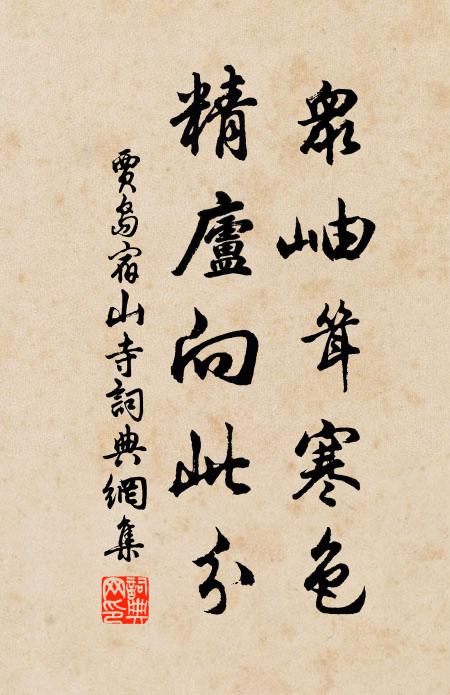 衆岫聳寒色
精廬向此分
賈島宿山寺詞典網集
詞典網印